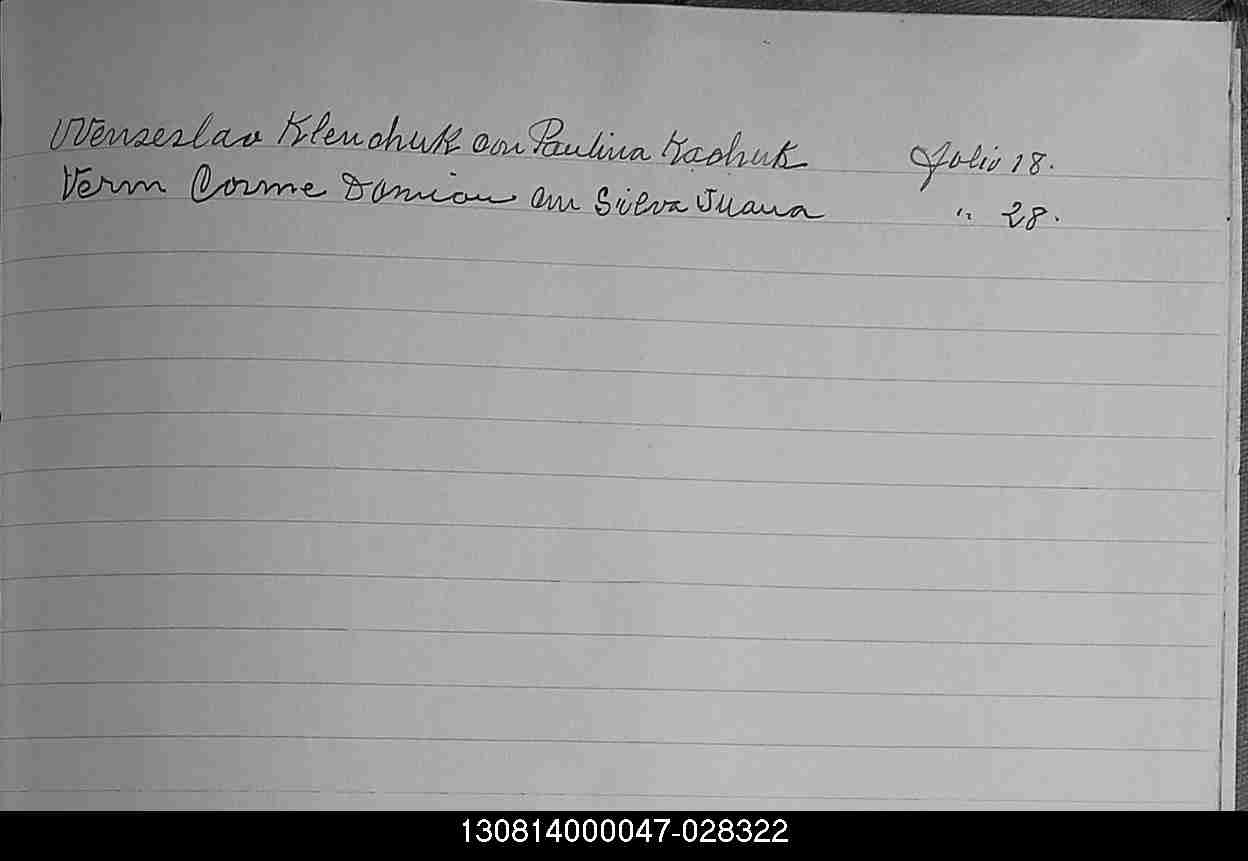 Wenseslao Klenchuk con Paulina Kachuk Julio 18.
Vern Cosme Damian con Silva Juana " 28.
130814000047-028322